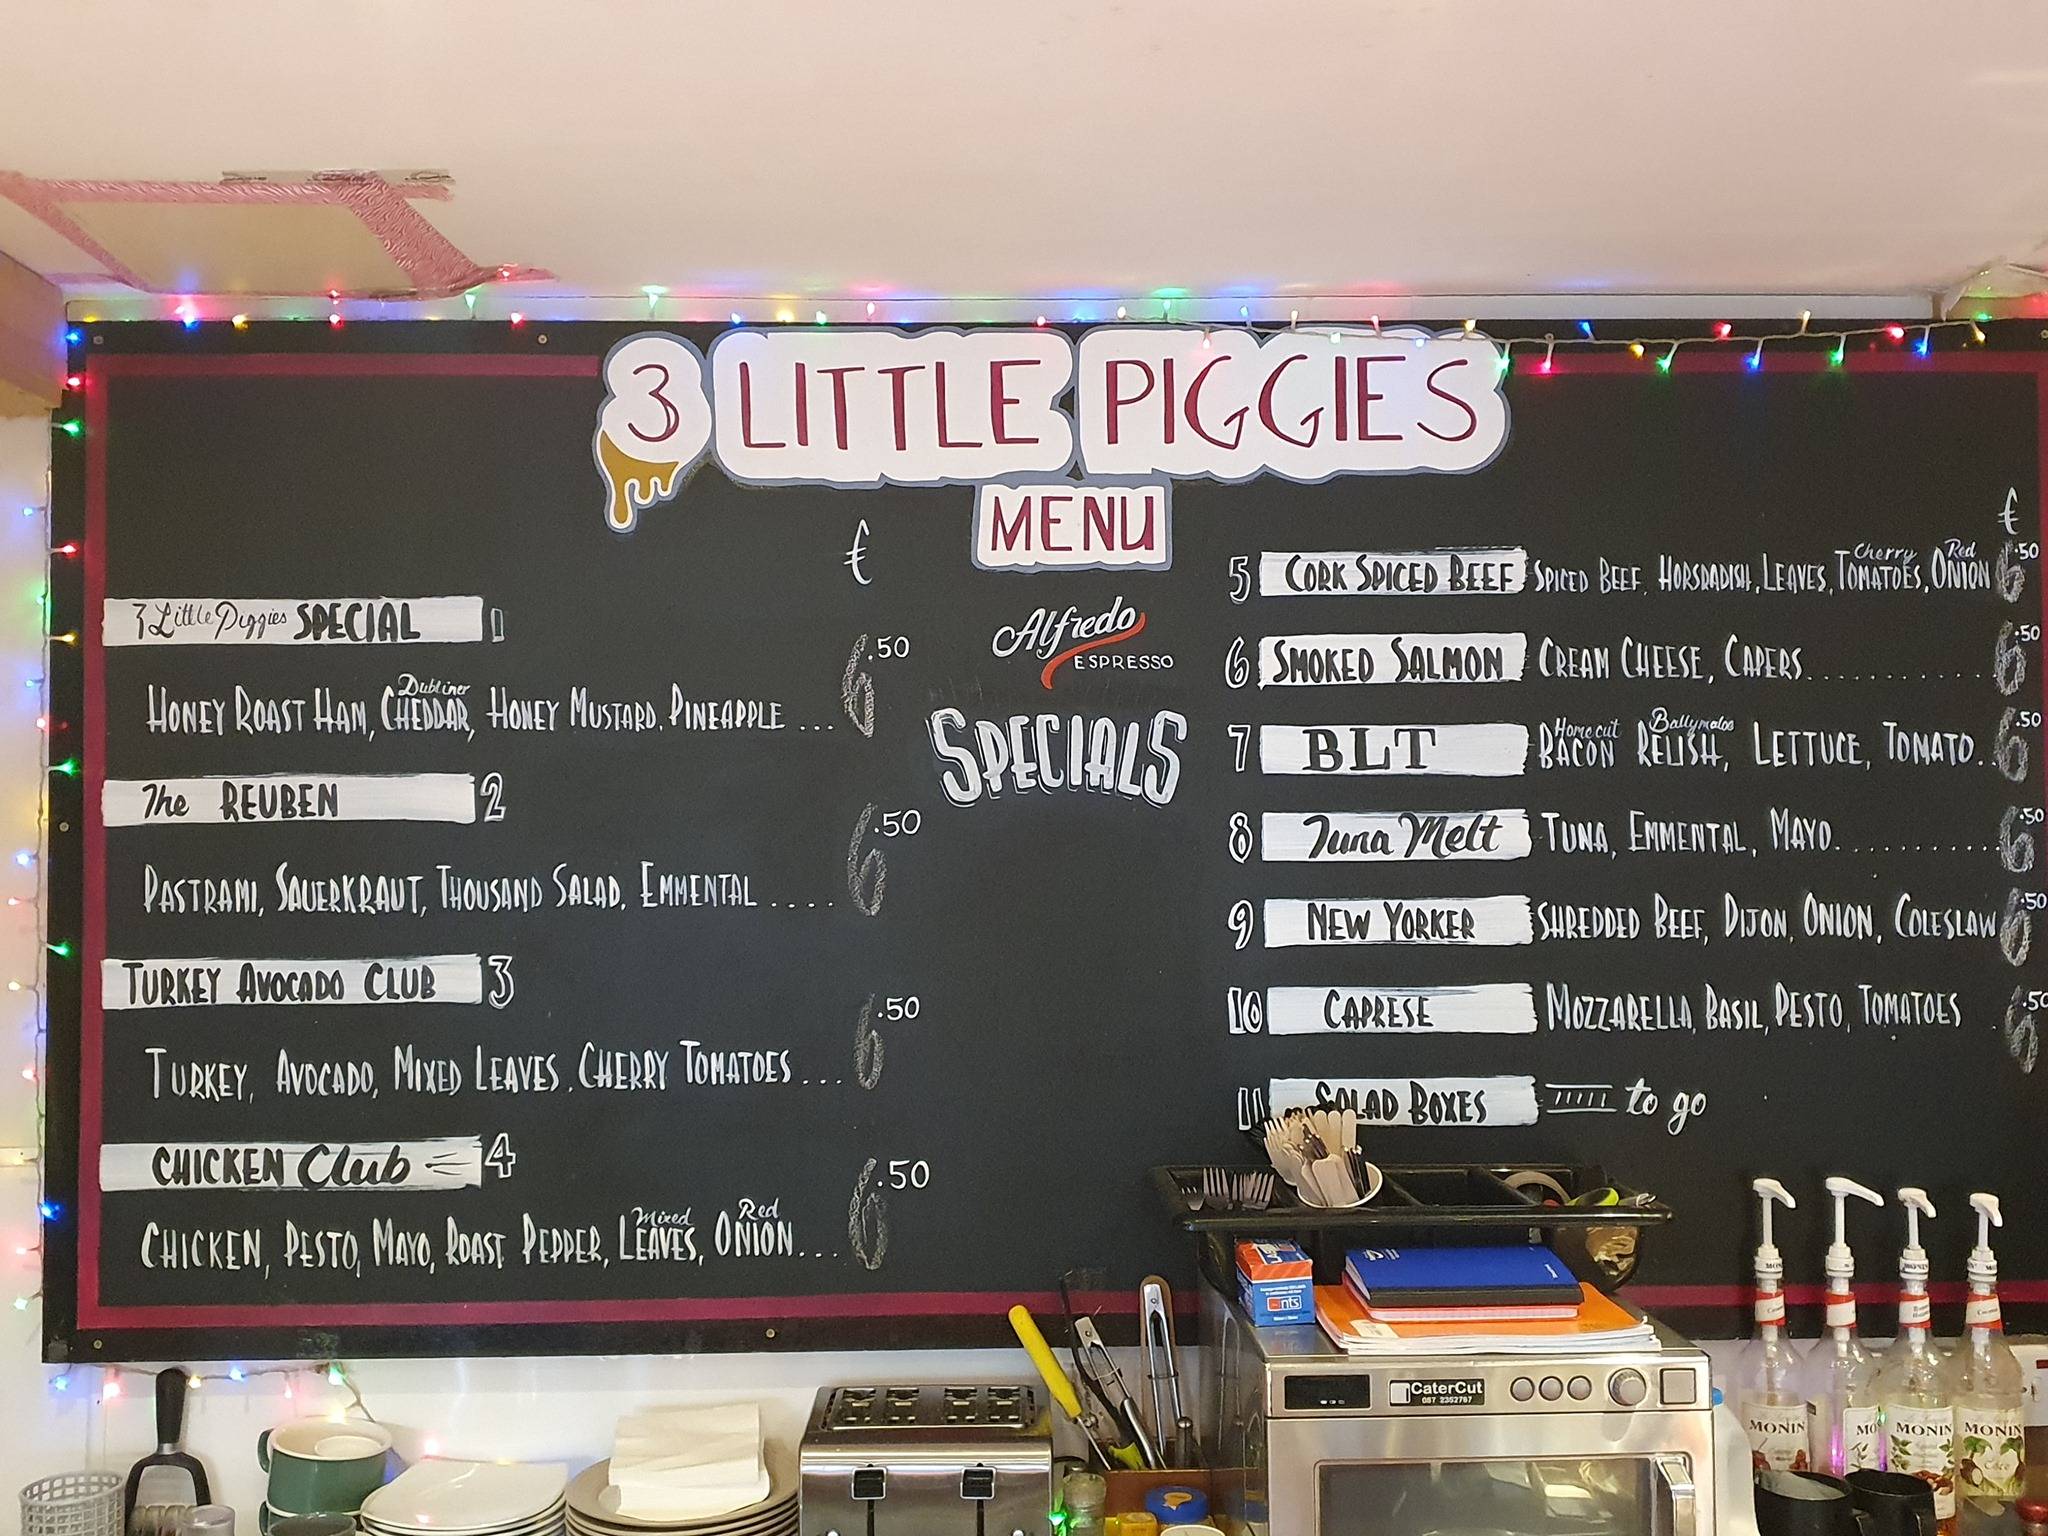 3 LITTLE PIGGIES
MENU
€
3 Little Piggies SPECIAL 1
HONEY ROAST HAM, Dubliner CHEDDAR, HONEY MUSTARD, PINEAPPLE ... 6.50
The REUBEN 2
PASTRAMI, SAUERKRAUT, THOUSAND SALAD, EMMENTAL .... 6.50
TURKEY AVOCADO CLUB 3
TURKEY, AVOCADO, MIXED LEAVES, CHERRY TOMATOES ... 6.50
CHICKEN Club 4
CHICKEN, PESTO, MAYO, ROAST PEPPER, Mixed LEAVES, Red ONION... 6.50
Alfredo
ESPRESSO
SPECIALS
€
5 CORK SPICED BEEF SPICED BEEF, HORSRADISH, LEAVES, Cherry TOMATOES, Red ONION 6.50
6 SMOKED SALMON CREAM CHEESE, CAPERS............ 6.50
7 BLT Homecut BACON Ballymaloe RELISH, LETTUCE, TOMATO.. 6.50
8 Tuna Melt TUNA, EMMENTAL, MAYO........... 6.50
9 NEW YORKER SHREDDED BEEF, DIJON, ONION, COLESLAW 6.50
10 CAPRESE MOZZARELLA, BASIL, PESTO, TOMATOES . 6.50
11 SALAD BOXES to go
nts
CaterCut
087 2352767
MONIN
MONIN
MONIN
Coco